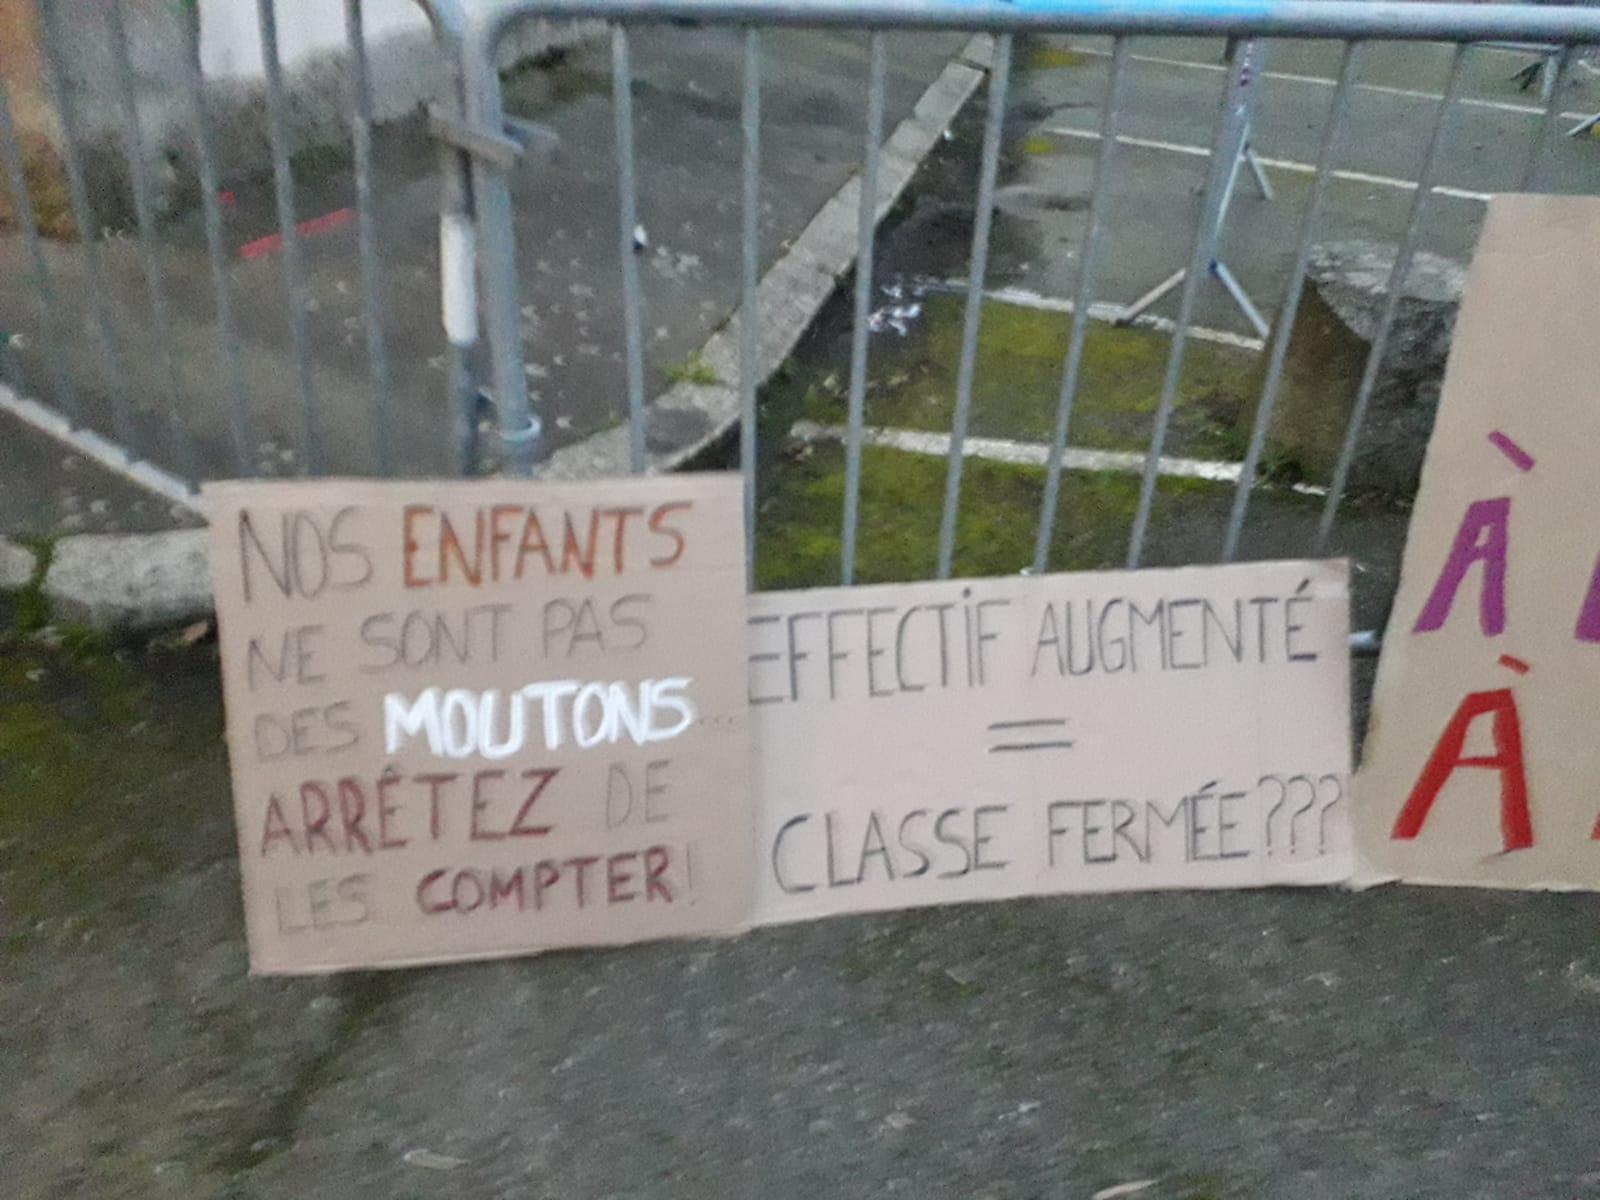 NOS ENFANTS
NE SONT PAS
DES MOUTONS...
ARRÊTEZ DE
LES COMPTER!
EFFECTIF AUGMENTÉ
=
CLASSE FERMÉE???
À
À